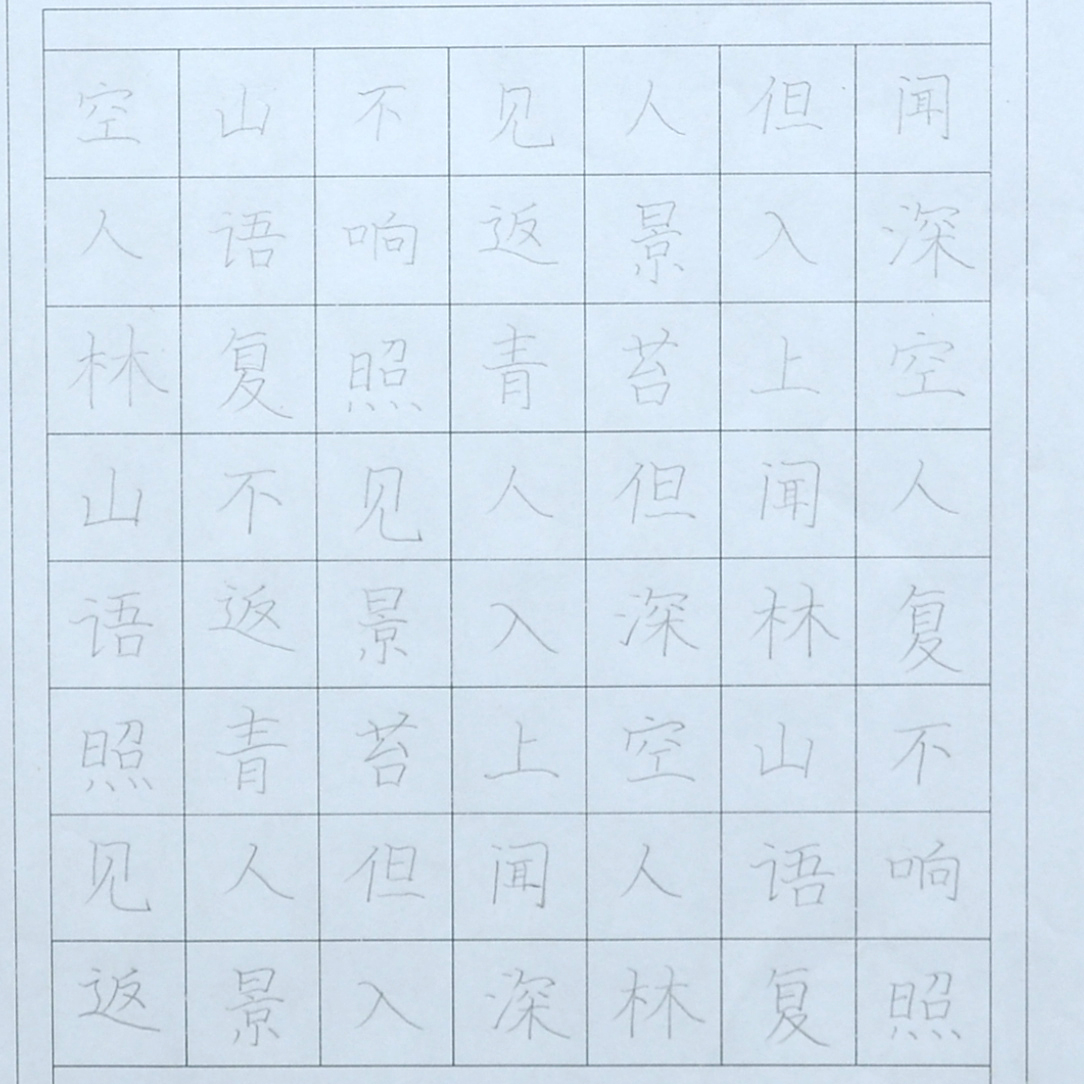 空山不见人但闻
人语响返景入深
林复照青苔上空
山不见人但闻人
语返景入深林复
照青苔上空山不
见人但闻人语响
返景入深林复照